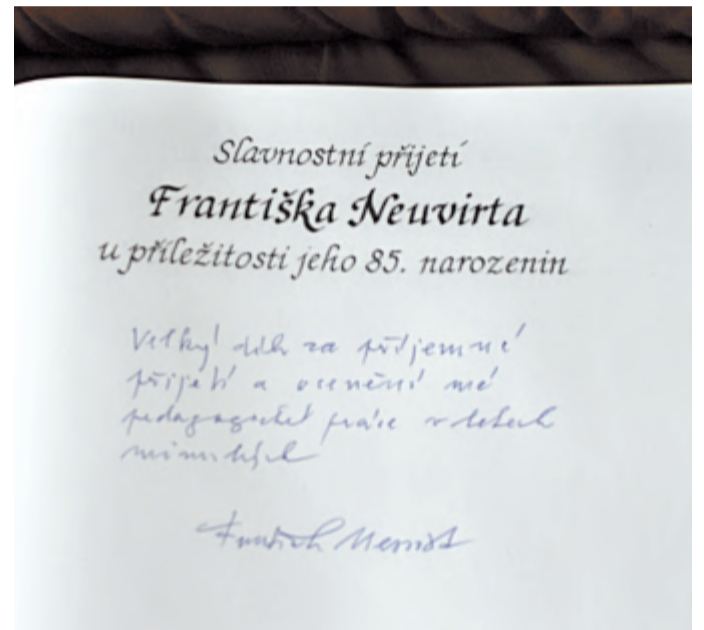 Slavnostní přijetí
Františka Neuvirta
u příležitosti jeho 85. narozenin
Velký dík za příjemné
přijetí a ocenění mé
pedagogické práce v letech
minulých
František Neuvirt